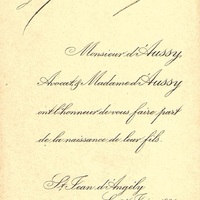 Monsieur d'Aussy,
Avocat & Madame d'Aussy
ont l'honneur de vous faire part
de la naissance de leur fils.
St Jean d'Angély